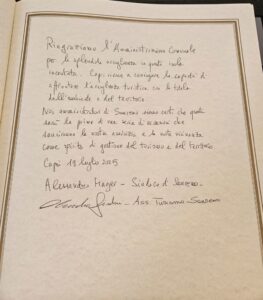 Ringraziamo l'Amministrazione Comunale
per la splendida accoglienza in questa isola
incantata. Capri riesce a coniugare la capacità di
affrontare l'accoglienza turistica con la tutela
dell'ambiente e del territorio.
Noi amministratori di Sanremo siamo certi che questa
sarà la prima di una serie di occasioni che
suggelleranno la nostra amicizia e la nostra vicinanza
come spirito di gestione del turismo e del territorio.
Capri 19 luglio 2025
Alessandro Mager - Sindaco di Sanremo -
- Ass. Turismo - Sanremo